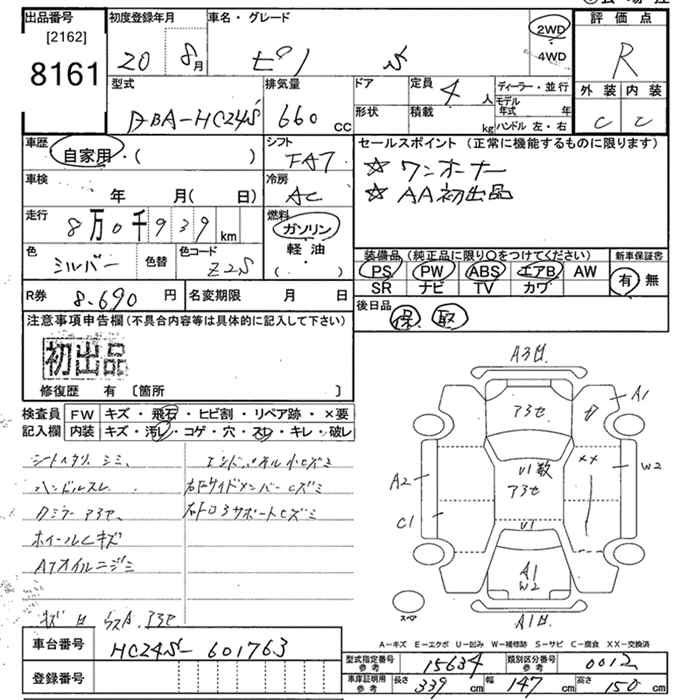 出品番号
[2162]
8161
初度登録年月
20 8月
車名・グレード
ピノ S
2WD
4WD
評価点
R
外装 内装
C C
型式
DBA-HC24S
排気量
660 CC
ドア
形状
定員 4 人
積載 kg
ディーラー・並行
モデル年式 年
ハンドル 左・右
車歴
自家用・( )
シフト
FAT
車検
年 月( 日)
冷房
AC
走行
8万0千939 km
燃料
ガソリン
軽油
( ・ )
色
シルバー
色替
色コード
Z2S
R券 8,690 円
名変期限 月 日
セールスポイント (正常に機能するものに限ります)
☆ ワンオーナー
☆ AA初出品
装備品 (純正品に限り○をつけてください)
PS PW ABS エアB AW
SR ナビ TV カワ
新車保証書
有 無
後日品
保 取
注意事項申告欄 (不具合内容等は具体的に記入して下さい)
初出品
修復歴 有 〔箇所 〕
検査員 FW キズ・飛石・ヒビ割・リペア跡・×要
記入欄 内装 キズ・汚レ・コゲ・穴・スレ・キレ・破レ
シミ
ハンドルスレ
ホイールCキズ
ATオイルニジミ
右Fサイドメンバー
車台番号 HC24S-601763
登録番号
A3
A1
U1
A2
C1
W2
XX
U1
A1
W2
A1
スペア
A-キズ E-エクボ U-凹み W-補修跡 S-サビ C-腐食 XX-交換済
型式指定番号 参考 15634
類別区分番号 参考 0012
車庫証明用 参考 長さ 339 cm 幅 147 cm 高さ 150 cm